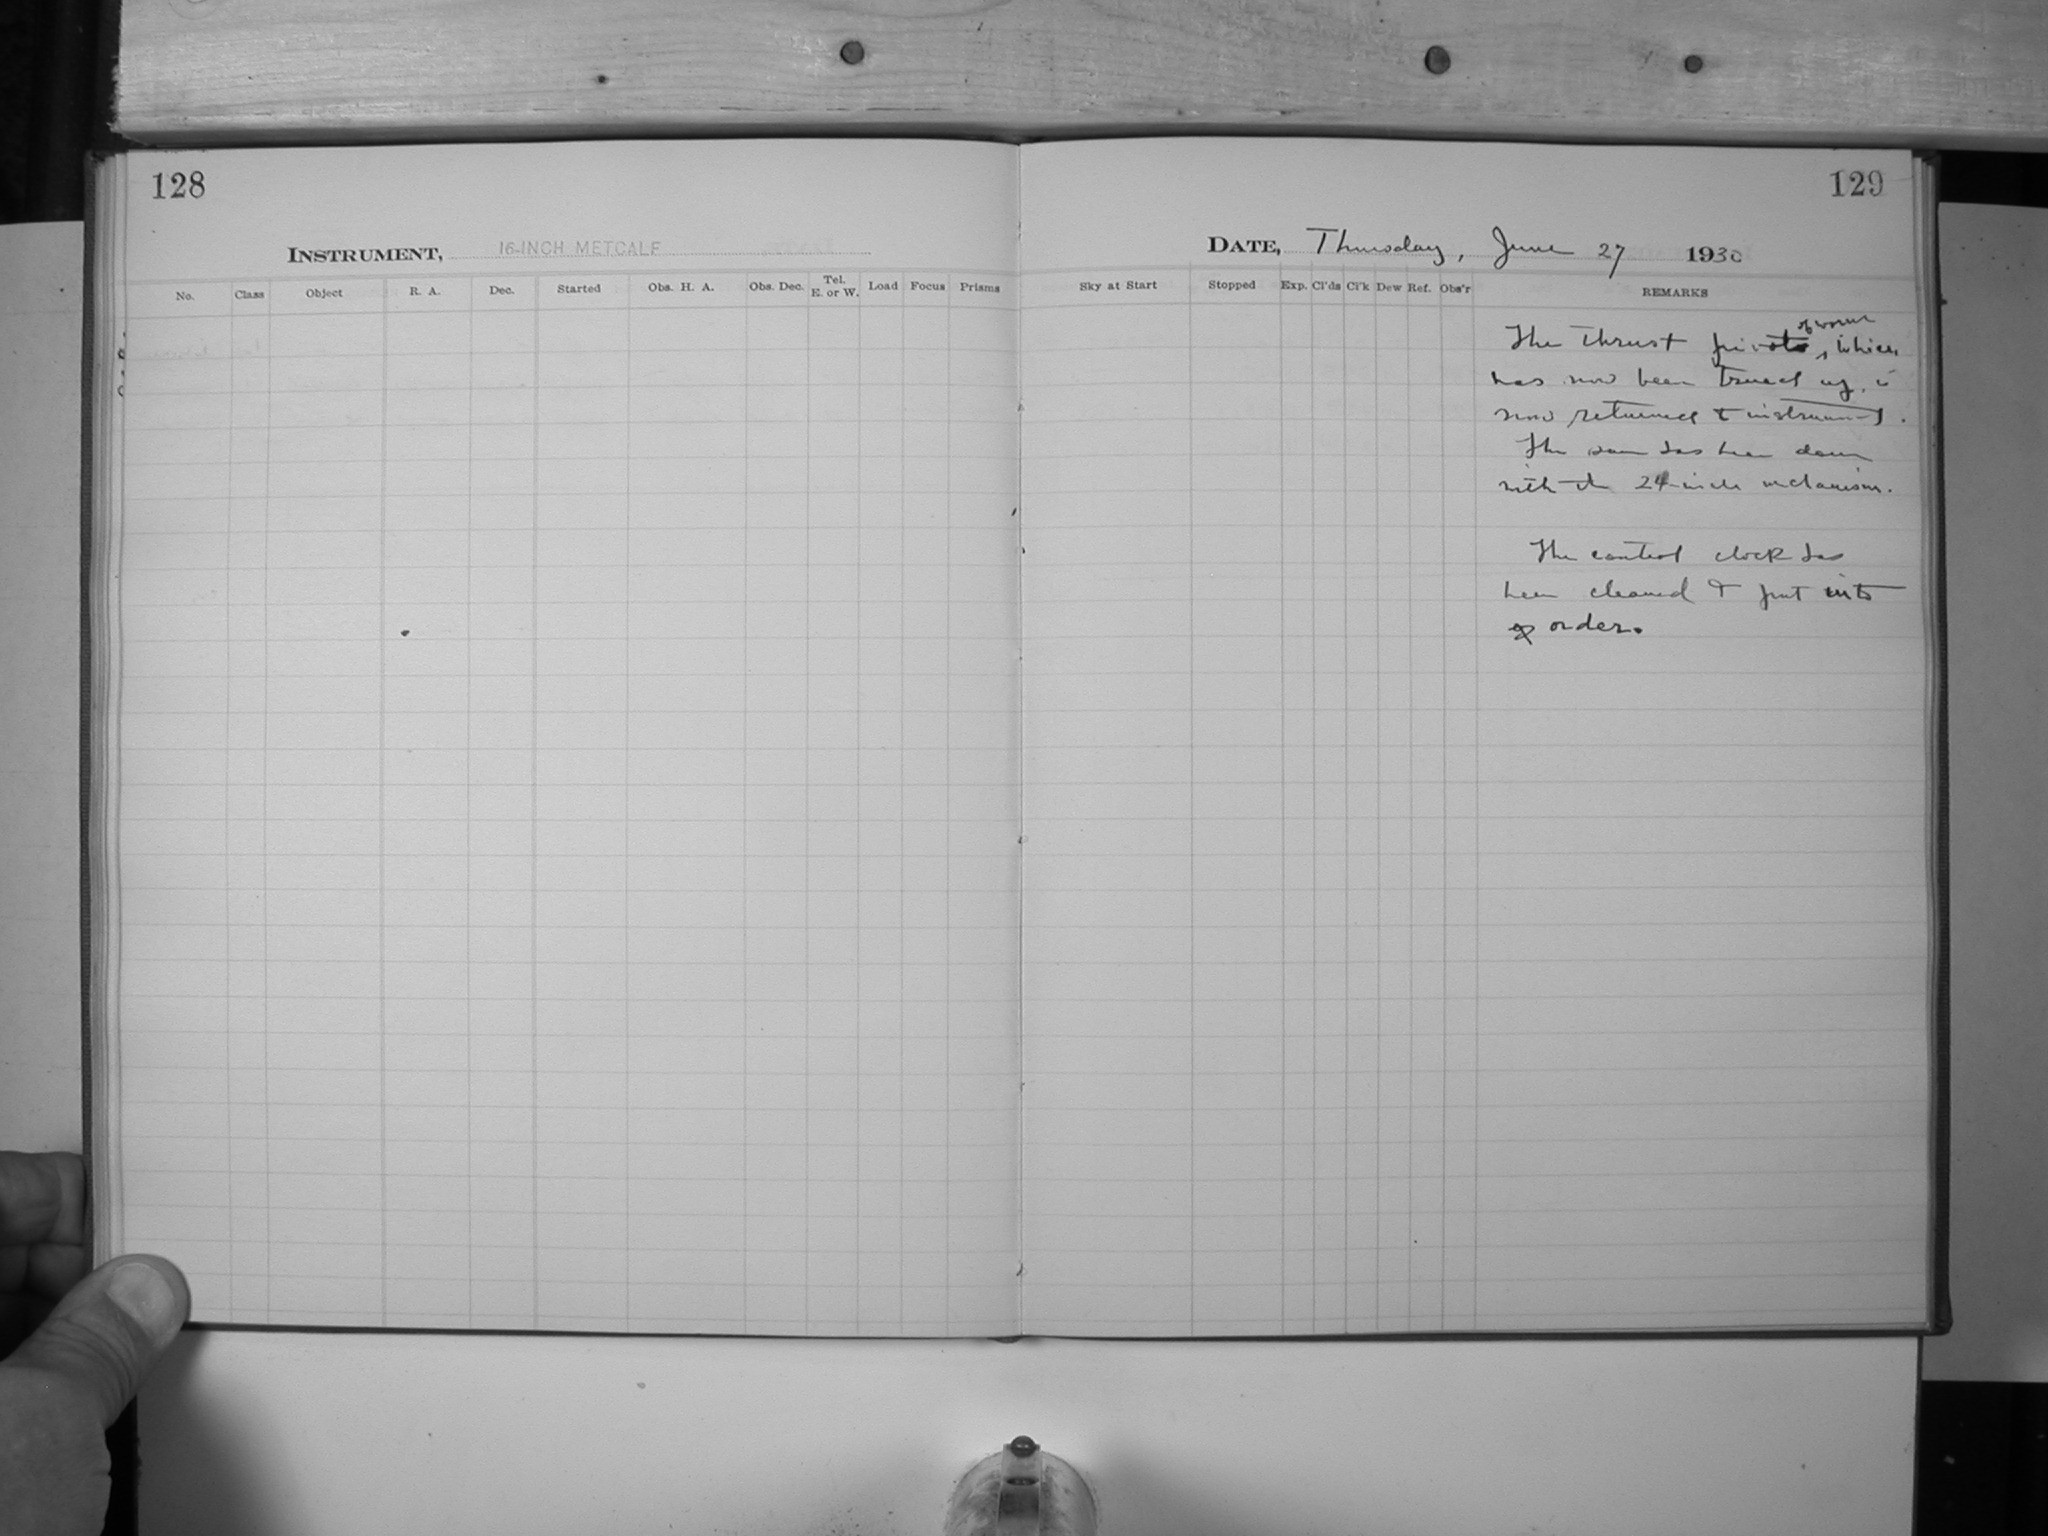 128
129
INSTRUMENT, 16-INCH METCALF
DATE, Thursday, June 27 1930
No. Class Object R. A. Dec. Started Obs. H. A. Obs. Dec. Tel. E. or W. Load Focus Prisms
Sky at Start Stopped Exp. Cl'ds Cl'k Dew Ref. Obs'r REMARKS
of worm
The thrust pivot, which
has now been trued up, is
now returned to instrument.
The same has been done
with the 24-inch mechanism.
The control clock has
been cleaned & put into
order.